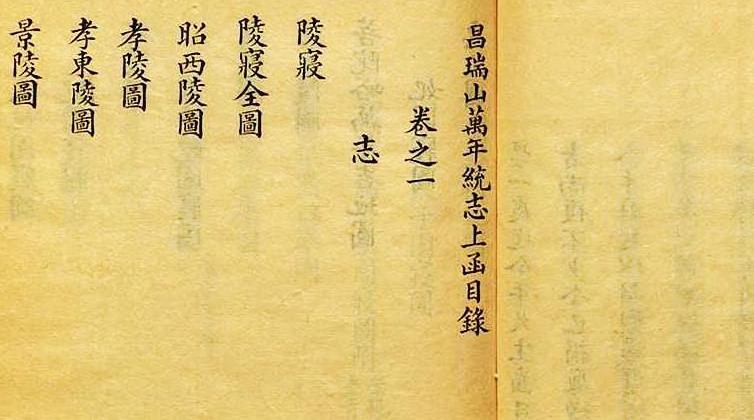 昌瑞山萬年統志上函目錄
卷之一
志
陵寢
陵寢全圖
昭西陵圖
孝陵圖
孝東陵圖
景陵圖